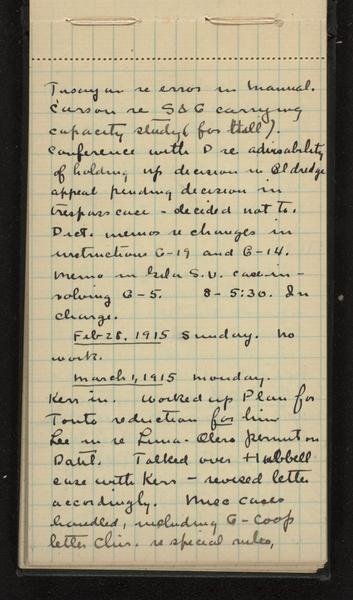 Tusayan re error in Manual.
Carson re S&G carrying
capacity study (for Hall).
Conference with D re advisability
of holding up decision in Eldredge
appeal pending decision in
trespass case - decided not to.
Dict. memos re changes in
instructions G-19 and G-14.
Memo in Gila S.U. case in-
volving G-5. 8-5:30. In
charge.
Feb 28, 1915 Sunday. No
work.
March 1, 1915 Monday.
Kerr in. Worked up Plan for
Tonto reduction for him
Lee in re Luna-Otero permit on
Datil. Talked over Hubbell
case with Kerr - revised letter
accordingly. Misc cases
handled, including G-Coop
letter Chir. re special rules,